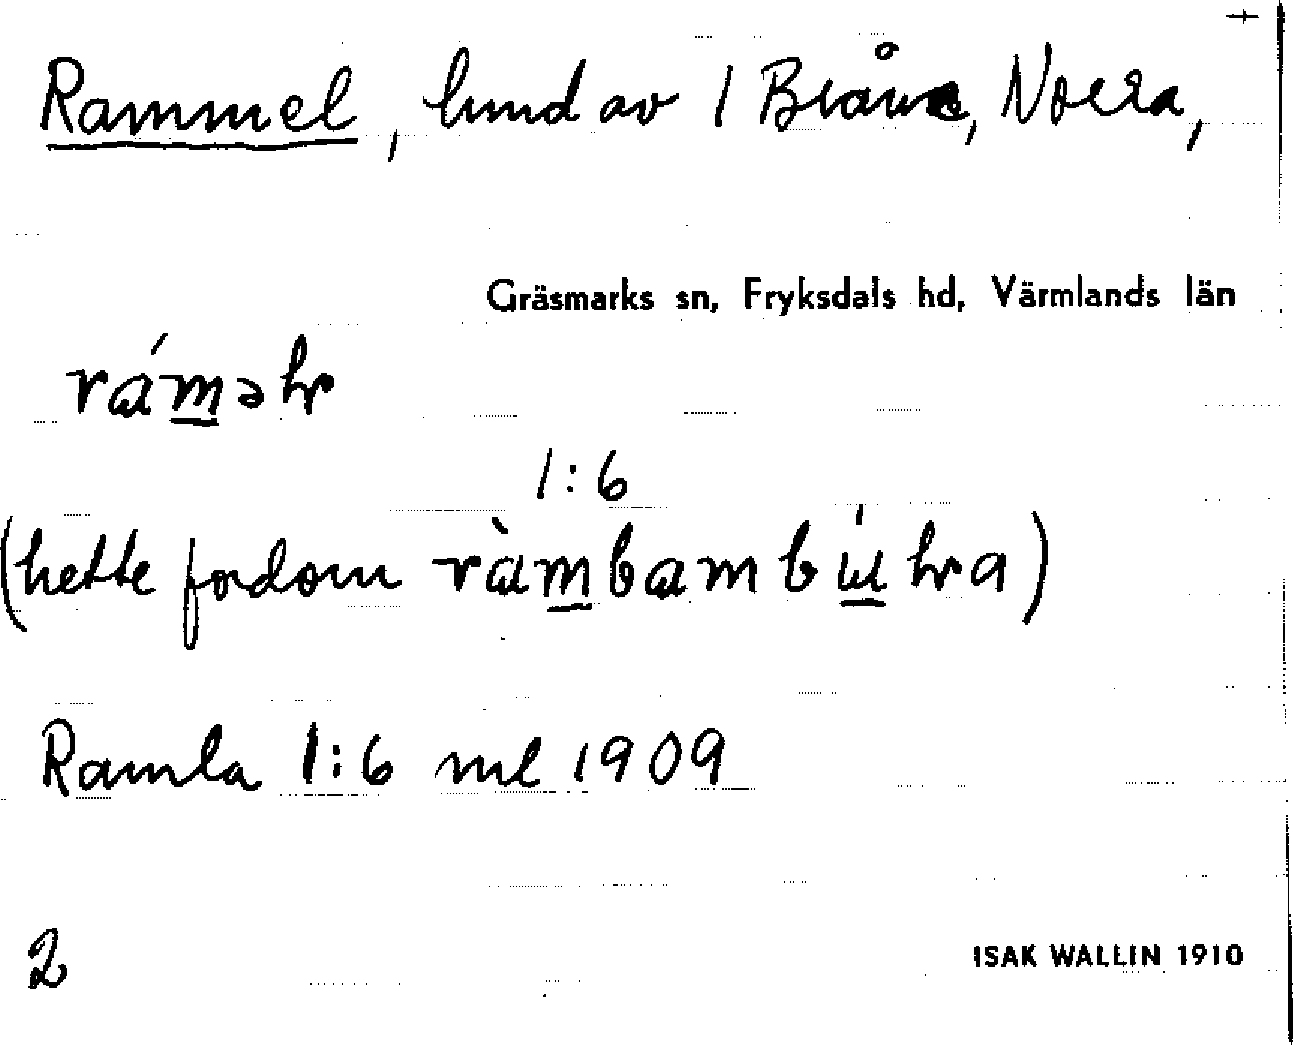 Rammel, lund av 1 Bråne, Norra,
Gräsmarks sn, Fryksdals hd, Värmlands län
rám̲əɫr
1:6
(hette fordom ràm̲bambú̲ɫra)
Ramla 1:6 ml 1909
2
ISAK WALLIN 1910